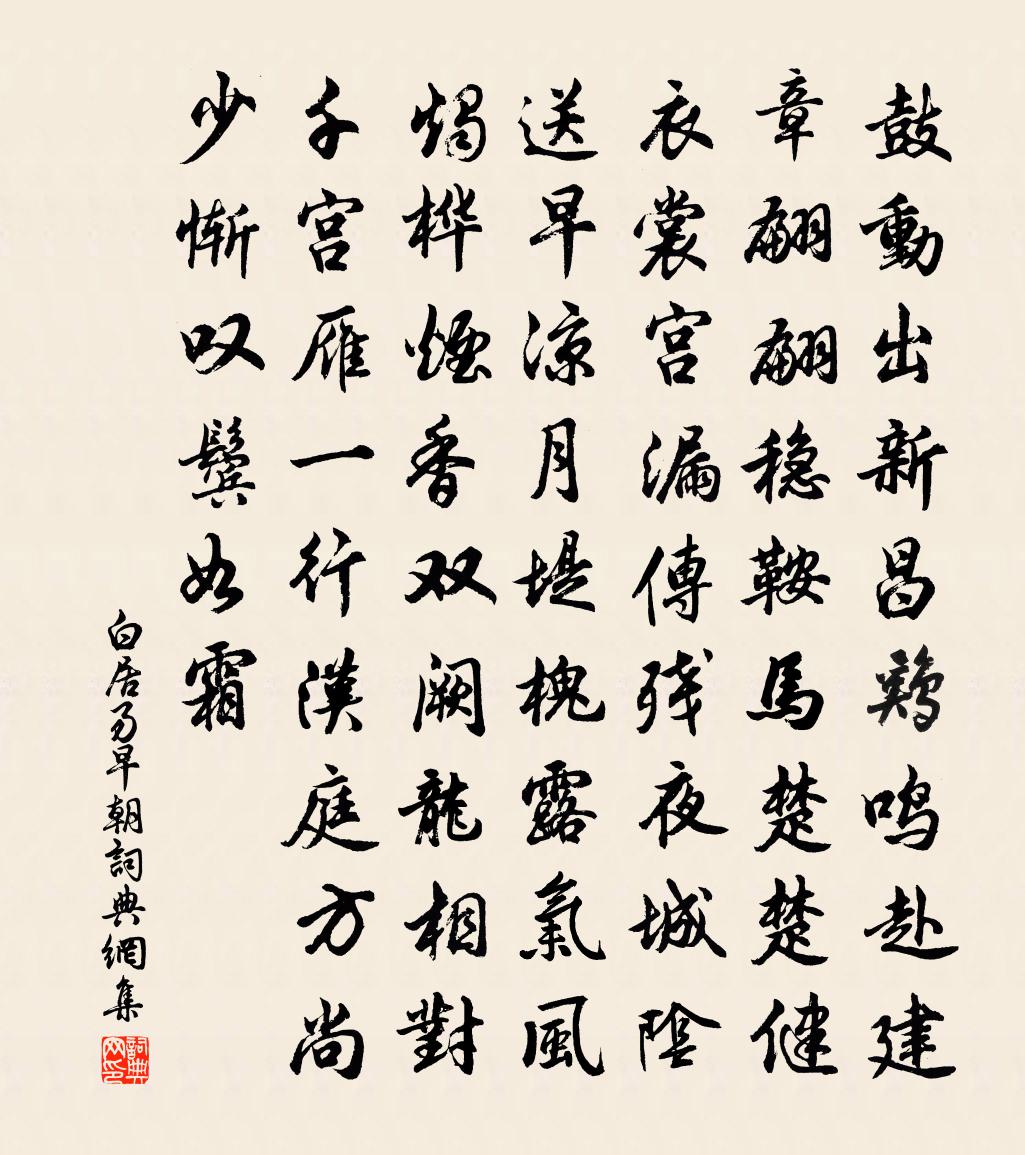 鼓動出新昌鷄鳴赴建
章翩翩稳鞍馬楚楚健
衣裳宫漏傳残夜城陰
送早涼月堤槐露氣風
燭桦煙香双阙龍相對
千宫雁一行漢庭方尚
少惭叹鬓如霜
白居易早朝詞典網集
詞典网印